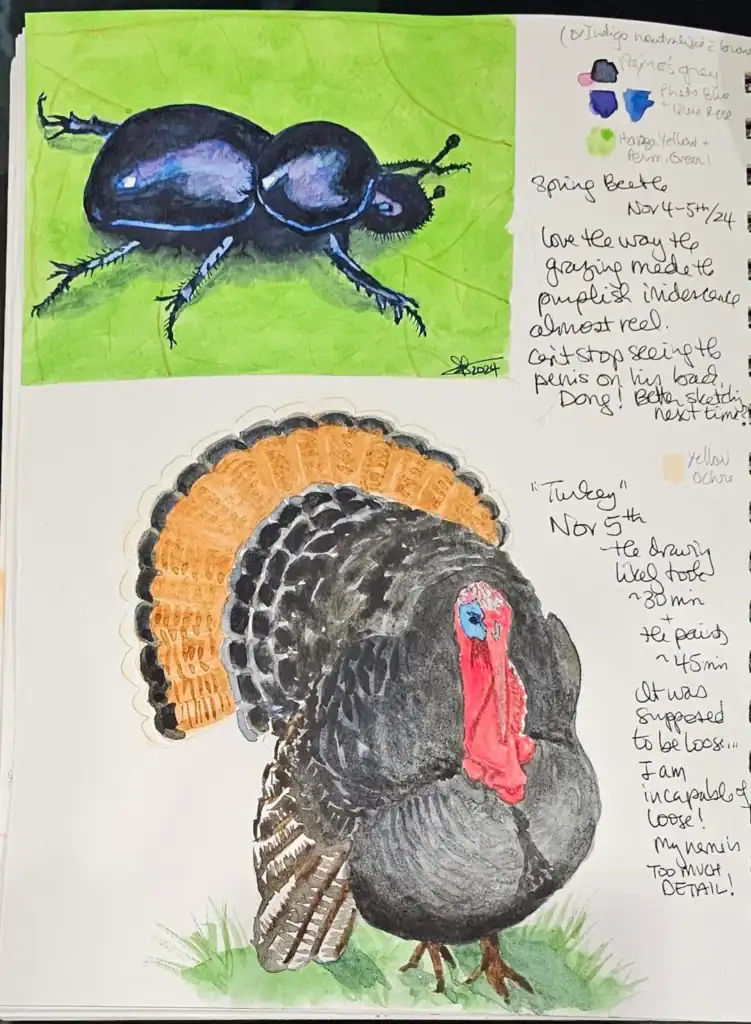 (or Indigo neutralized c brown
Payne's grey
Phthalo Blue
+ Quin Rose
Hansa Yellow +
Perm. Green!
Spring Beetle
Nov 4-5th/24
love the way the
grazing made the
purplish iridescence
almost real.
can't stop seeing the
penis on his head.
Dang! Better sketching
next time!
SB 2024
Yellow
Ochre
"Turkey"
Nov 5th
the drawing
likely took
~30 min
+
the paints
~45 min
It was
supposed
to be loose...
I am
incapable of
loose!
My name is
TOO MUCH
DETAIL!